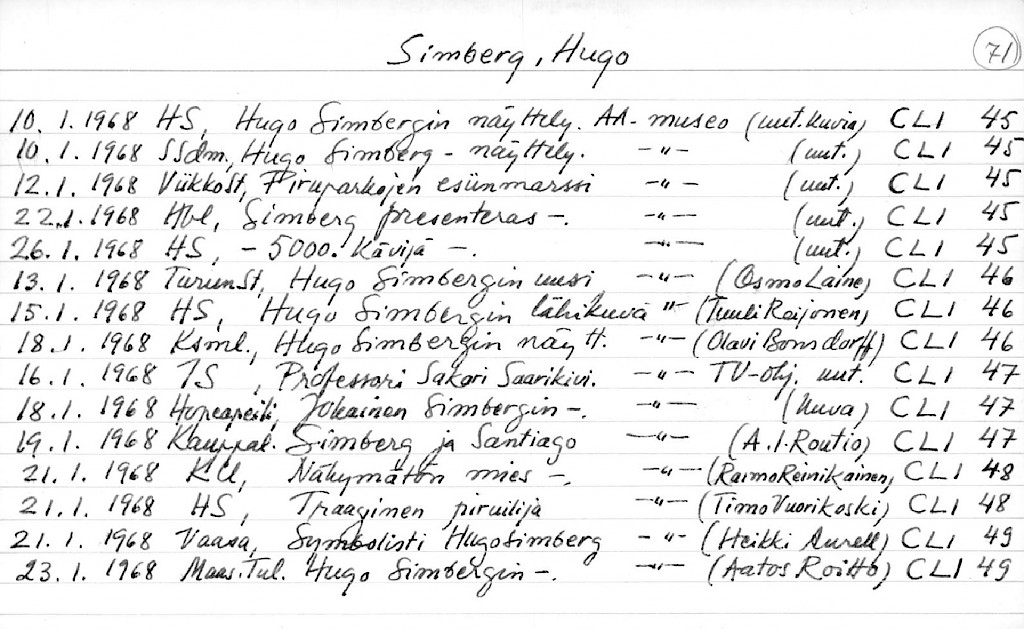 Simberg, Hugo 71
10. 1. 1968 HS, Hugo Simbergin näyttely. AA-museo (uut. kuvia) CLI 45
10. 1. 1968 SSdm., Hugo Simberg-näyttely. -"- (uut.) CLI 45
12. 1. 1968 ViikkoSt, Piruparkojen esiinmarssi -"- (uut.) CLI 45
22. 1. 1968 Hbl, Simberg presenteras -. -"- (uut.) CLI 45
26. 1. 1968 HS, - 5000. Kävijä -. -"- (uut.) CLI 45
13. 1. 1968 TurunSt, Hugo Simbergin uusi -"- (Osmo Laine) CLI 46
15. 1. 1968 HS, Hugo Simbergin lähikuva "- (Tuuli Reijonen) CLI 46
18. 1. 1968 Ksml., Hugo Simbergin näytt. -"- (Olavi Bonsdorff) CLI 46
16. 1. 1968 IS, Professori Sakari Saarikivi. -"- TV-ohj. uut. CLI 47
18. 1. 1968 Hopeapeili, Jokainen Simbergin -. -"- (kuva) CLI 47
19. 1. 1968 Kauppal. Simberg ja Santiago -"- (A.I. Routio) CLI 47
21. 1. 1968 KU, Näkymätön mies -. -"- (Raimo Reinikainen) CLI 48
21. 1. 1968 HS, Traaginen piruilija -"- (Timo Vuorikoski) CLI 48
21. 1. 1968 Vaasa, Symbolisti Hugo Simberg -"- (Heikki Aurell) CLI 49
23. 1. 1968 Maas. Tul. Hugo Simbergin -. -"- (Aatos Roitto) CLI 49